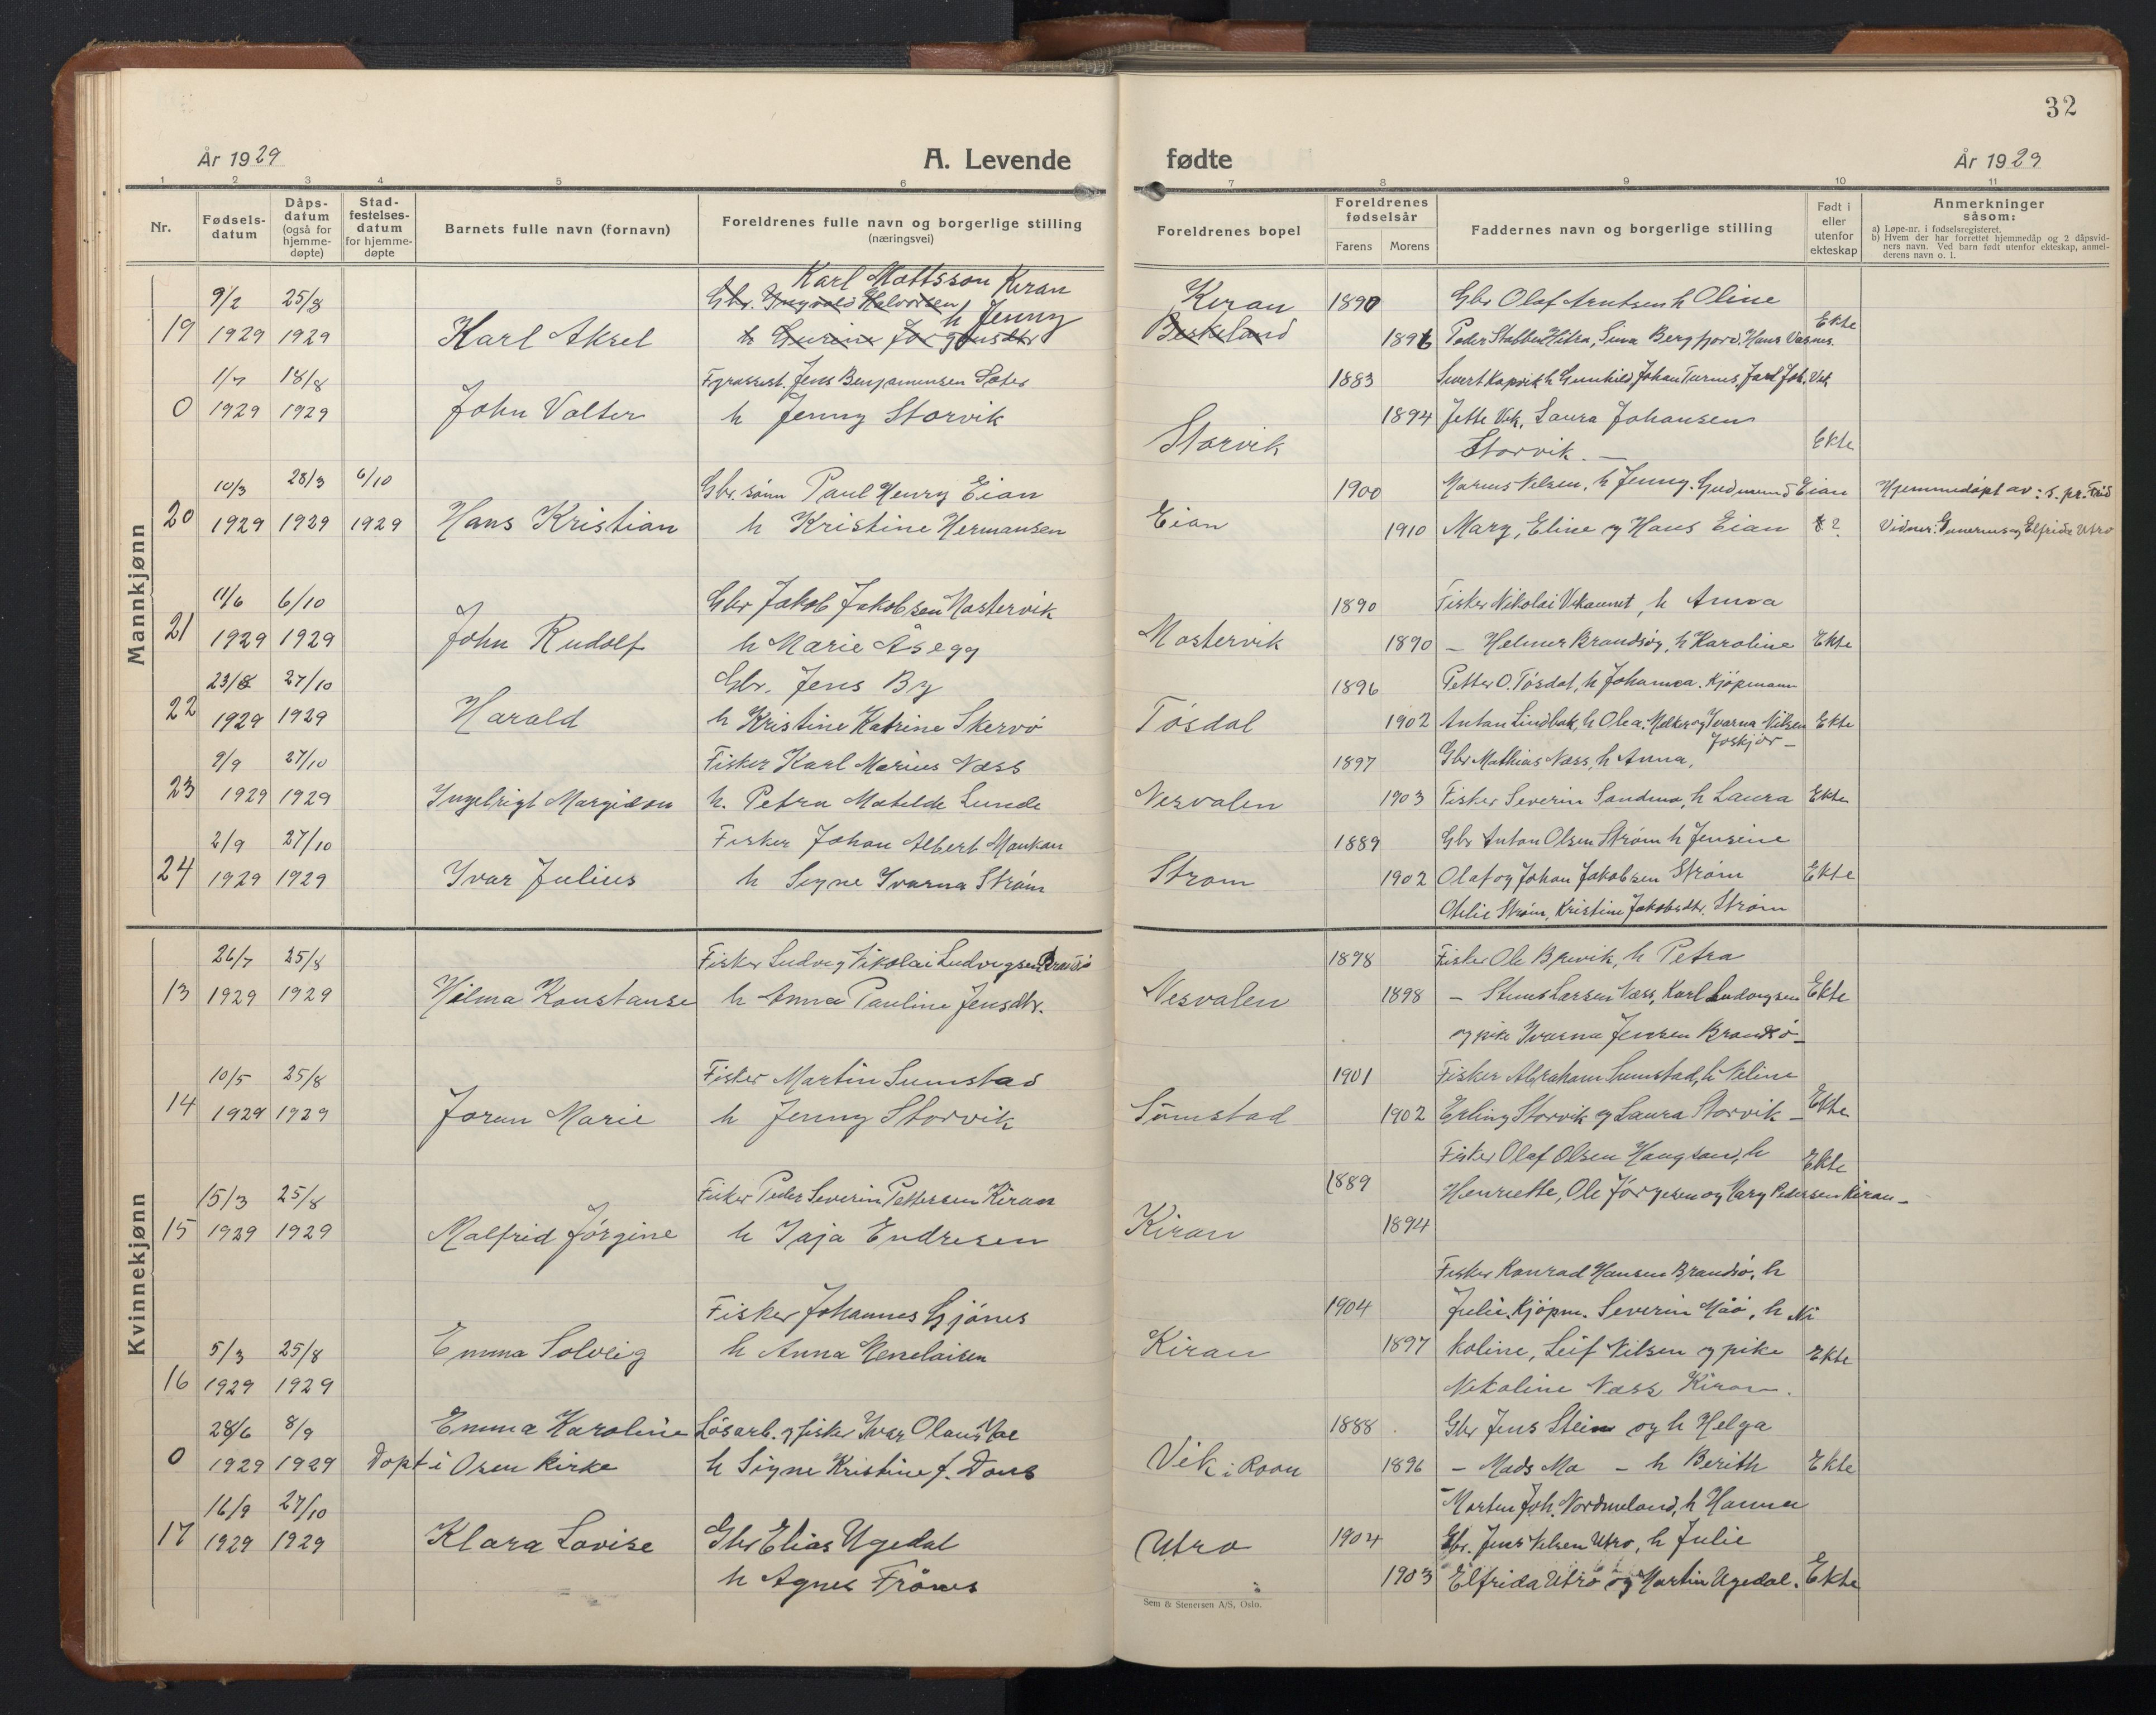 32
År 1929
A. Levende
fødte
År 1929
1 2 3 4 5 6 7 8 9 10 11
Nr.
Fødsels-
datum
Dåps-
datum
(også for
hjemme-
døpte)
Stad-
festelses-
datum
for hjemme-
døpte
Barnets fulle navn (fornavn)
Foreldrenes fulle navn og borgerlige stilling
(næringsvei)
Foreldrenes bopel
Foreldrenes
fødselsår
Farens Morens
Faddernes navn og borgerlige stilling
Født i
eller
utenfor
ekteskap
Anmerkninger
såsom:
a) Løpe-nr. i fødselsregisteret.
b) Hvem der har forrettet hjemmedåp og 2 dåpsvid-
ners navn. Ved barn født utenfor ekteskap, anmel-
derens navn o. l.
Mannkjønn
Karl Mattsson Kiran
9/2 25/8 Gbr. Ingvald Halvorsen Kiran 1890 Gbr Olaf Arntsen h Oline
h Jenny
19 1929 1929 Karl Aksel h Gurine Jørgensdtr Beskeland 1896 Peder Stabben Hitra, Sina Bergfjord, Hans Vasnes. Ekte
1/7 18/8 Fyrassist. Jens Benjaminsen Sæter 1883 Sivert Kapvik h Gunhild, Johan Turnes, Joh. Vik
0 1929 1929 John Valter h Jenny Storvik 1894 Jette Vik, Laura Johansen
Storvik Storvik. — Ekte
10/3 28/3 6/10 Gbr. sønn Paul Henry Eian 1900 Marius Nelsen, h Jenny. Gudmund Eian Hjemmedøpt av: s. pr.
20 1929 1929 1929 Hans Kristian h Kristine Hermansen Eian 1910 Mary, Eline og Hans Eian ? Vidner: og Elfride Utro
11/6 6/10 Gbr Jakob Jakobsen Mastervik 1890 Fisker Nikolai Vikaunet, h Anna
21 1929 1929 John Rudolf h Marie Åsegg Mastervik 1890 — Helmer Brandsøy, h Karoline Ekte
23/8 27/10 Gbr. Jens By 1896 Petter O. Tøsdal, h Johanna. Kjøpmann
22 1929 1929 Harald h Kristine Katrine Skervø Tøsdal 1902 Anton Lindbak, h Olea. og Ivarna Nilsen Ekte
9/9 27/10 Fisker Karl Marius Næss 1897 Gbr Mathias Næss, h Anna,
23 1929 1929 Ingebrigt Margido h. Petra Matilde Lunde Nesvalen 1903 Fisker Severin Sandmo, h Laura Ekte
2/9 27/10 Fisker Johan Albert Maukan 1889 Gbr Anton Olsen Strøm h Jensine
24 1929 1929 Ivar Julius h Signe Ivarna Strøm Strøm 1902 Olaf og Johan Jakobsen Strøm Ekte
Otilie Strøm, Kristine Jakobsdtr. Strøm
Kvinnekjønn
26/7 25/8 Fisker Ludvig Nikolai Ludvigsen Brandsø 1898 Fisker Ole Breivik, h Petra
13 1929 1929 Hilma Konstanse h Anna Pauline Jensdtr. Nesvalen 1898 — Larsen Næss, Karl Ludvigsen Ekte
og pike Ivarna Jensen Brandsø —
10/5 25/8 Fisker Martin Sumstad 1901 Fisker Abraham Sumstad, h Neline
14 1929 1929 Jorun Marie h Jenny Storvik Sumstad 1902 Erling Storvik og Laura Storvik — Ekte
Fisker Olaf Olsen Haugsand, h Ekte
15/3 25/8 Fisker Peder Severin Pettersen Kiran 1889 Henriette, Ole Jørgesen og Mary Pedersen Kiran —
15 1929 1929 Malfrid Jørgine h Jaja Endresen Kiran 1894
Fisker Konrad Hansen Brandsø, h
Fisker Johannes Gjønes 1904 Julie. Kjøpm. Severin Måø, h Ni
5/3 25/8 Emma Solveig h Anna Menelaisen Kiran 1897 koline, Leif Nilsen og pike Ekte
16 1929 1929 Nikoline Næss Kiran.
28/6 8/9 Emma Karoline Løsarb. og fisker Ivar Olaus Moe 1888 Gbr Jens Stein og h Helga
0 1929 1929 Døpt i Osen kirke h Signe Kristine f. Dous Vik i Roan 1896 — Mads Mo — h Berith Ekte
16/9 27/10 — Morten Joh. Nordmeland, h Hanna
17 1929 1929 Klara Lovise Gbr Elias Ugedal Utro 1904 Gbr. Jens Nilsen Utro, h Julie
h Agnes Frønes 1903 Elfrida Utro og Martin Ugedal. Ekte
Sem & Stenersen A/S, Oslo.